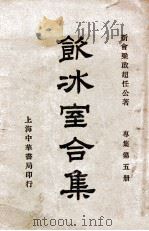 新會梁啟超任公著
專集第五册
飲冰室合集
上海中華書局印行